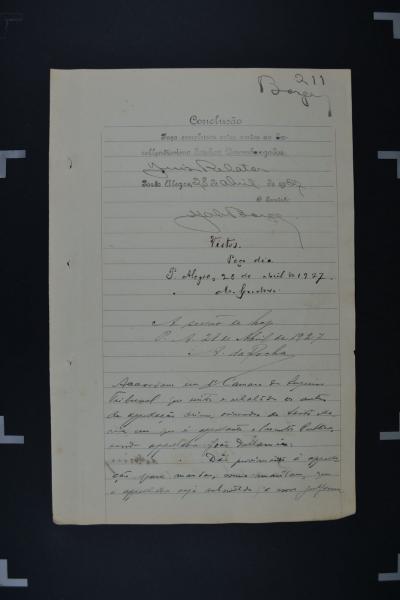 211
Borges
Conclusão
Faço conclusos estes autos ao Ex-
cellentissimo Senhor Desembargador
Juiz Relator
Porto Alegre, 23 de abril de 1927
O Escrivão
Vistos.
Peço dia
P. Alegre, 26 de abril de 1927.
A sessão de hoje
P. A. 28 de Abril de 1927
A. da Rocha
Accordam em 1ª Camara do Supremo
Tribunal que vistos e relatados os autos
de appellação crime, oriundos de Santa Ma-
ria em que é appellante a Justiça Publica,
sendo appellado João
Dão provimento á appella-
ção para mandar, como mandam, que
o appellado seja submettido a novo julgamen